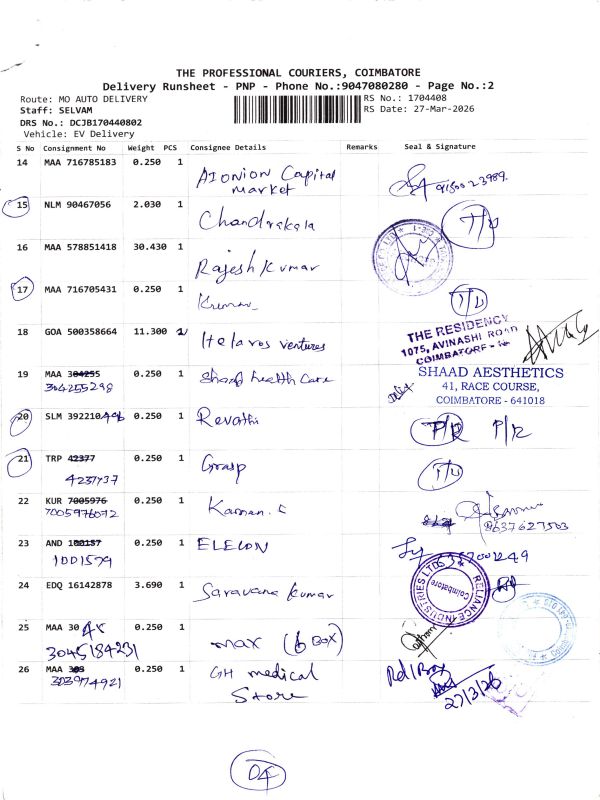 THE PROFESSIONAL COURIERS, COIMBATORE
Delivery Runsheet - PNP - Phone No.:9047080280 - Page No.:2
Route: MO AUTO DELIVERY
RS No.: 1704408
Staff: SELVAM
RS Date: 27-Mar-2026
DRS No.: DCJB170440802
Vehicle: EV Delivery
S No Consignment No Weight PCS Consignee Details Remarks Seal & Signature
14 MAA 716785183 0.250 1 AIONION Capital market 9150023989
15 NLM 90467056 2.030 1 Chandrakala
16 MAA 578851418 30.430 1 Rajesh Kumar
17 MAA 716705431 0.250 1 Kumar
18 GOA 500358664 11.300 Helaros ventures
THE RESIDENCY
1075, AVINASHI ROAD
COIMBATORE
19 MAA 304255 0.250 1 Shaad health Care
304255298
SHAAD AESTHETICS
41, RACE COURSE,
COIMBATORE - 641018
20 SLM 392210496 0.250 1 Revathi P/R P/R
21 TRP 42377 0.250 1 Grasp
4237737
22 KUR 7005976 0.250 1
7005976072
9637627503
23 AND 0.250 1 ELECON
1001579
24 EDQ 16142878 3.690 1 Saravana Kumar
RELIANCE INDUSTRIES LTD
Coimbatore
25 MAA 30 0.250 1 max BOX)
3045184231
26 MAA 303 0.250 1 GH medical Store
3039774921
27/3/26
04